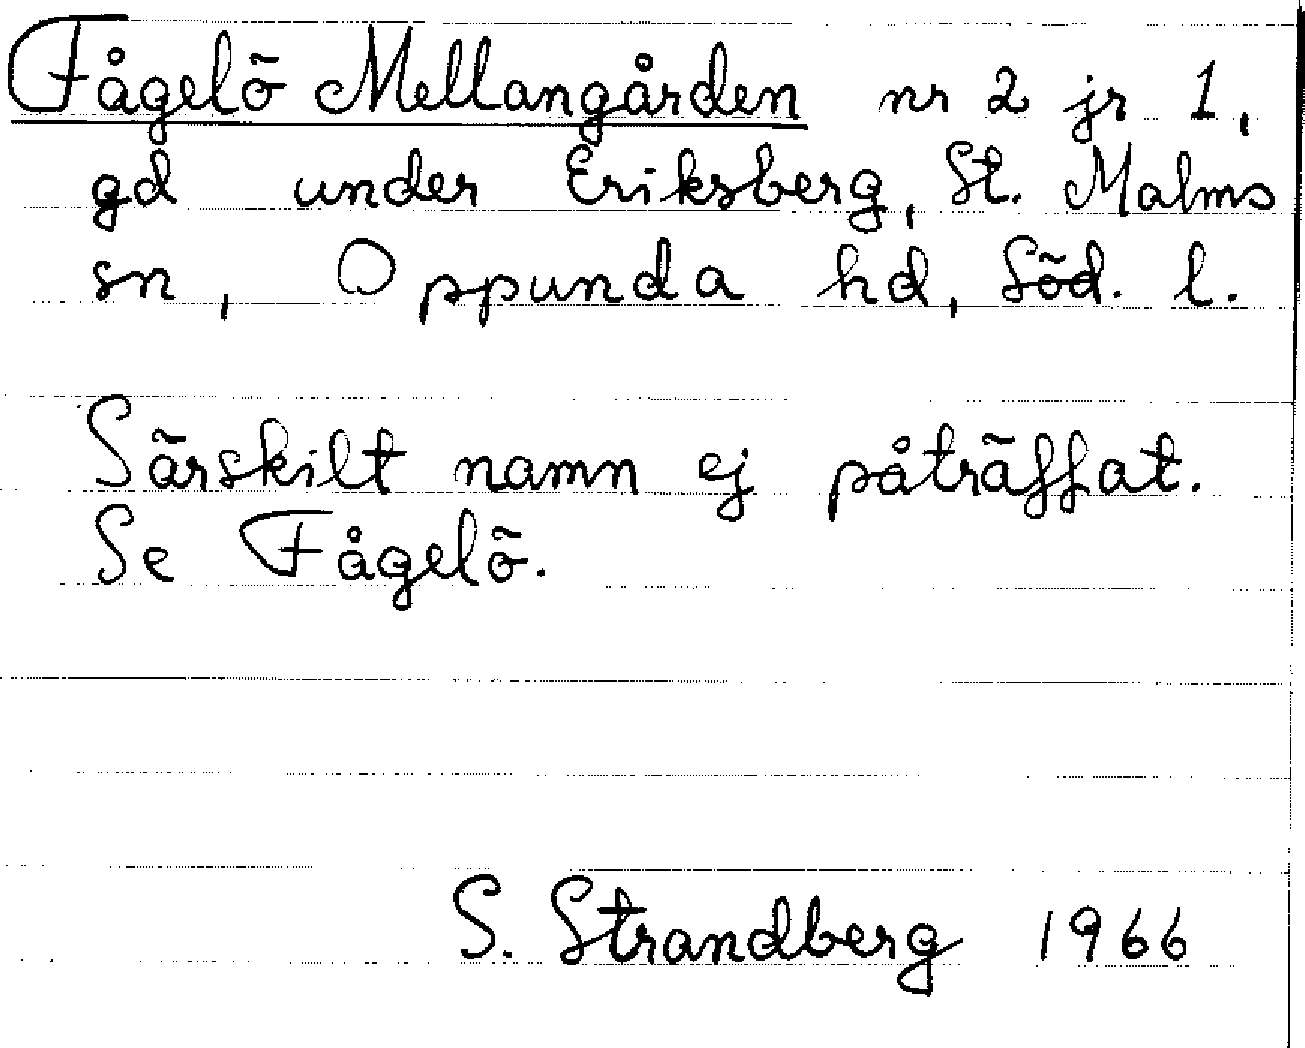 Fågelö Mellangården nr 2 jr 1,
gd under Eriksberg, St. Malms
sn, Oppunda hd, Söd. l.
Särskilt namn ej påträffat.
Se Fågelö.
S. Strandberg 1966